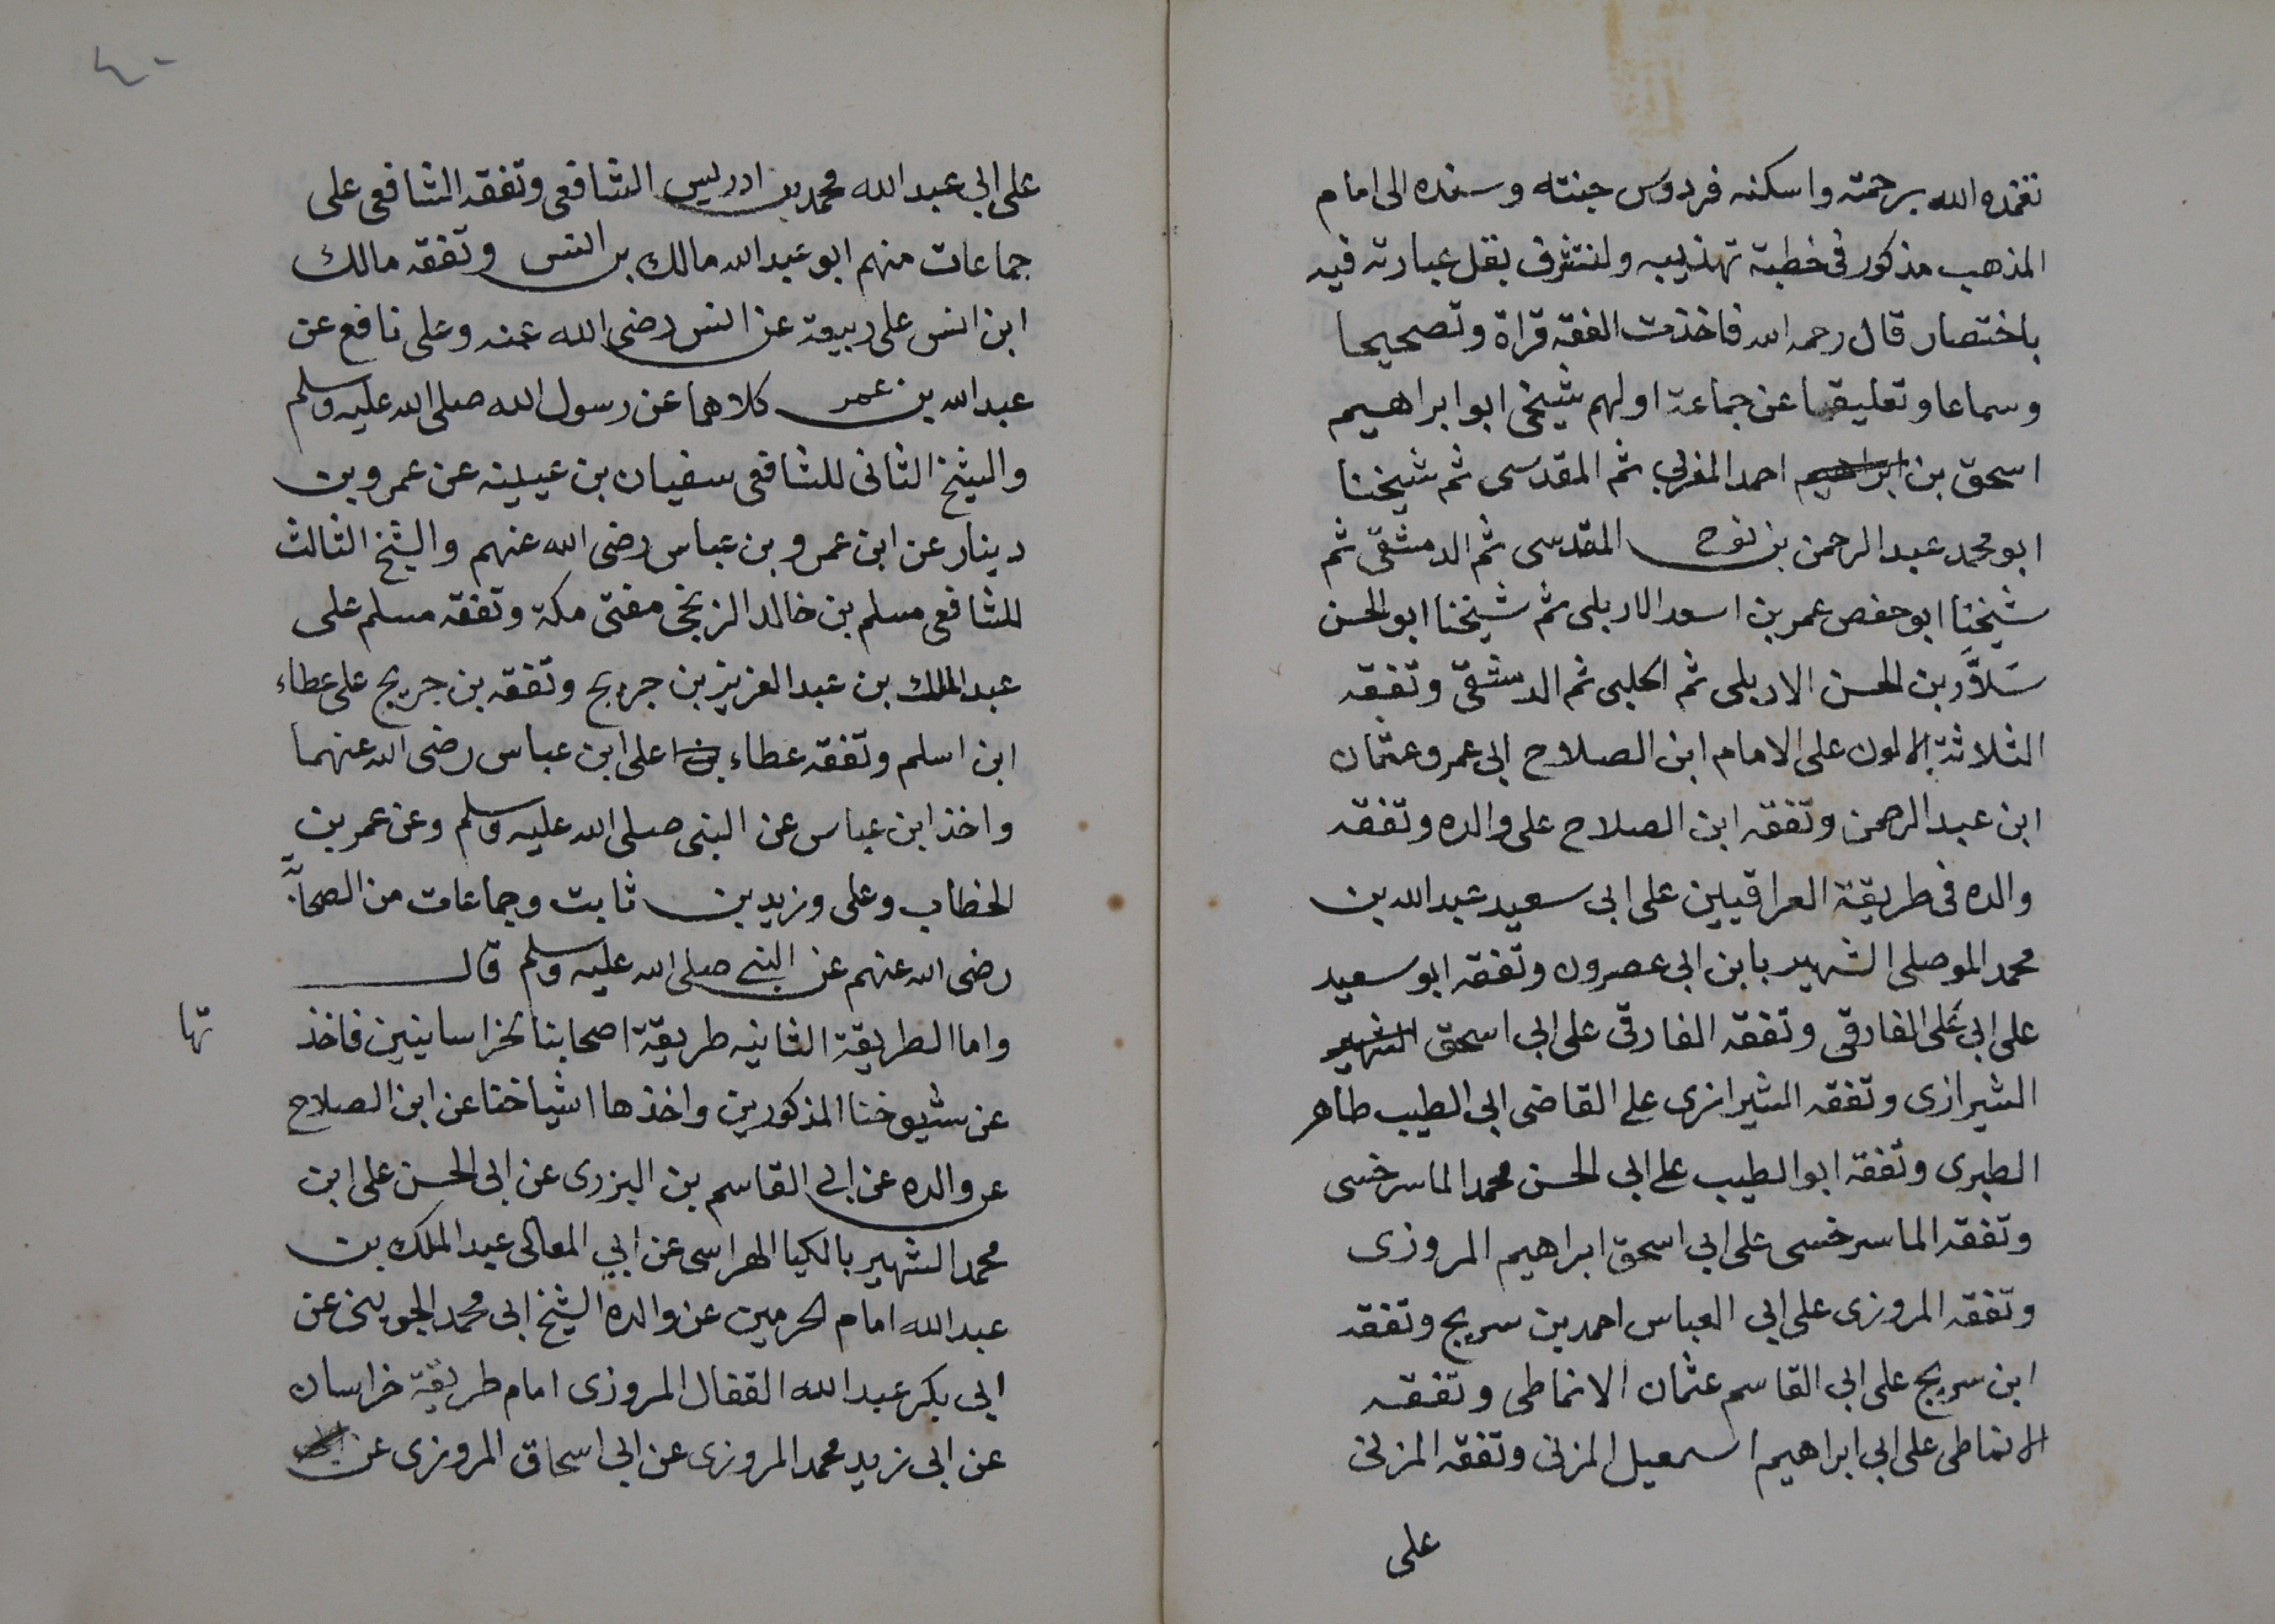 تغمده الله برحمته واسكنه فردوس جنته وسنده الى امام
المذهب مذكور فى خطبة تهذيبه ولنتشرف بنقل عبارته فيه
باختصار قال رحمه الله فاخذت الفقه قراة وتصحيحا
وسماعا وتعليقا عن جماعة اولهم شيخى ابو ابراهيم
اسحق بن ابراهيم احمد المغربي ثم المقدسى ثم شيخنا
ابو محمد عبد الرحمن بن نوح المقدسى ثم الدمشقى ثم
شيخنا ابو حفص عمر بن اسعد الاربلى ثم شيخنا ابو الحسن
سَلاَّر بن الحسن الاربلى ثم الحلبى ثم الدمشقى وتفقه
الثلاثة الاولون على الامام ابن الصلاح ابى عمرو عثمان
ابن عبد الرحمن وتفقه ابن الصلاح على والده وتفقه
والده فى طريقة العراقيين على ابى سعيد عبد الله بن
محمد الموصلى الشهير بابن ابى عصرون وتفقه ابو سعيد
على ابى على الفارقى وتفقه الفارقى على ابى اسحق الشهير
الشيرازى وتفقه الشيرازى على القاضى ابى الطيب طاهر
الطبرى وتفقه ابو الطيب على ابى الحسن محمد الماسرخسى
وتفقه الماسرخسى على ابى اسحق ابراهيم المروزى
وتفقه المروزى على ابى العباس احمد بن سريج وتفقه
ابن سريج على ابى القاسم عثمان الانماطى وتفقه
الانماطى على ابى ابراهيم اسمعيل المزنى وتفقه المزنى
على
٤٠
على ابى عبد الله محمد بن ادريس الشافعى وتفقه الشافعى على
جماعات منهم ابو عبد الله مالك بن انس وتفقه مالك
ابن انس على ربيعة عن انس رضى الله عنه وعلى نافع عن
عبد الله بن عمر كلاهما عن رسول الله صلى الله عليه وسلم
والشيخ الثانى للشافعى سفيان بن عيينه عن عمرو بن
دينار عن ابن عمر وبن عباس رضى الله عنهم والشيخ الثالث
للشافعى مسلم بن خالد الزنجى مفتى مكة وتفقه مسلم على
عبد الملك بن عبد العزيز بن جريج وتفقه بن جريج على عطاء
ابن اسلم وتفقه عطاء على ابن عباس رضى الله عنهما
واخذ ابن عباس عن النبى صلى الله عليه وسلم وعن عمر بن
الخطاب وعلى وزيد بن ثابت وجماعات من الصحابة
رضى الله عنهم عن النبى صلى الله عليه وسلم قال
واما الطريقة الثانيه طريقة اصحابنا الخراسانيين فاخذ
تها
عن شيوخنا المذكورين واخذها اشياخنا عن ابن الصلاح
عن والده عن ابى القاسم بن البزرى عن ابى الحسن على ابن
محمد الشهير بالكيا الهراسى عن ابي المعالى عبد الملك بن
عبد الله امام الحرمين عن والده الشيخ ابى محمد الجوينى عن
ابى بكر عبد الله القفال المروزى امام طريقة خراسان
عن ابى زيد محمد المروزى عن ابى اسحاق المروزى عن